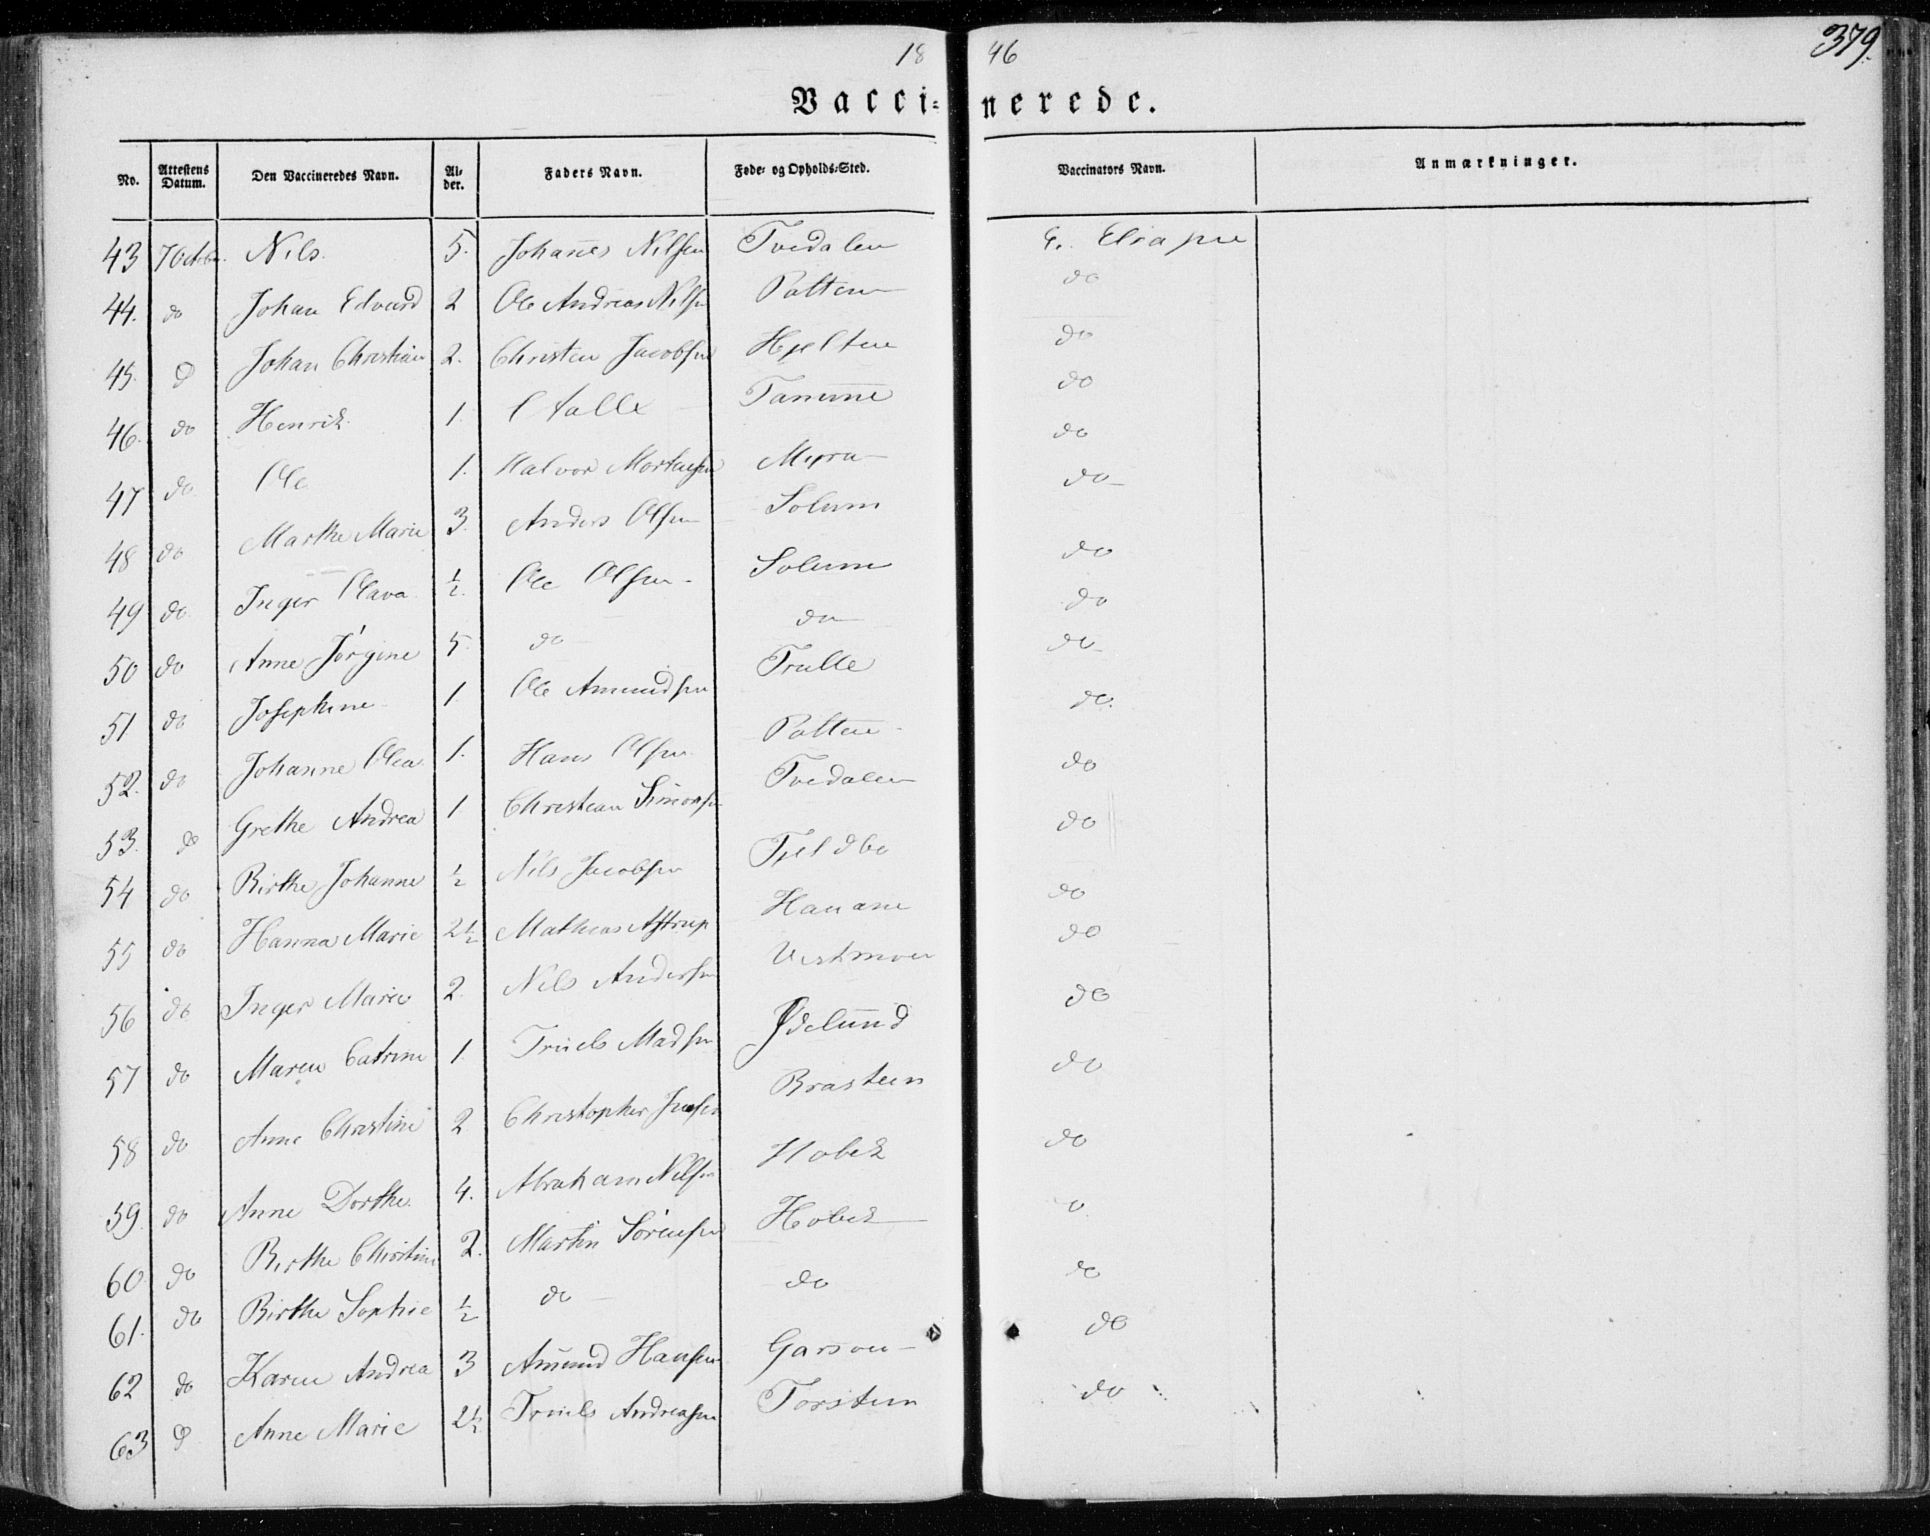 18 46
379.
Vacci= nerede.
No. Attestens Datum. Den Vaccineredes Navn. Al-der. Faders Navn. Føde- og Opholds-Sted. Vaccinators Navn. Anmærkninger.
43 7 Octbr. Nils. 5. Johañes Nilsen Tvedalen
44. do Johan Edvard 2 Ole Andreas Nilsen Patten do
45. do Johan Christian 2. Christen Jacobsen Hjelten do
46. do Henrik 1. do
47 do Ole 1. Halvor Mortensen Myra do
48 do Marthe Marie 3. Anders Olsen Solum do
49 do Inger Olava ½. Ole Olsen Solum do
50 do Anne Jørgine 5. do do do
51 do Josephine 1. Ole Amundsen Trulle do
52. do Johanne Olea 1. Hans Olsen Patten do
53. do Grethe Andrea 1 Christian Simonsen Tvedalen do
54 do Birthe Johanne ½ Nils Jacobsen do
55 do Hanna Marie 2½ Mathias Astrup Hauane do
56 do Inger Marie 2. Nils Andersen Vestmoen do
57 do Maren Catrine 1. Truels Madsen Ødelund do
58 do Anne Christine 2 Christopher Brasteen do
59 do Anne Dorthe 4. Abraham Nilsen Hobek do
60 do Birthe Christine 2. Martin Sørensen Hobek do
61. do Birthe Sophie ½ do do do
62 do Karen Andrea 3 Amund Hansen do
63 do Anne Marie 2½ Truels Andreasen Torsteen do